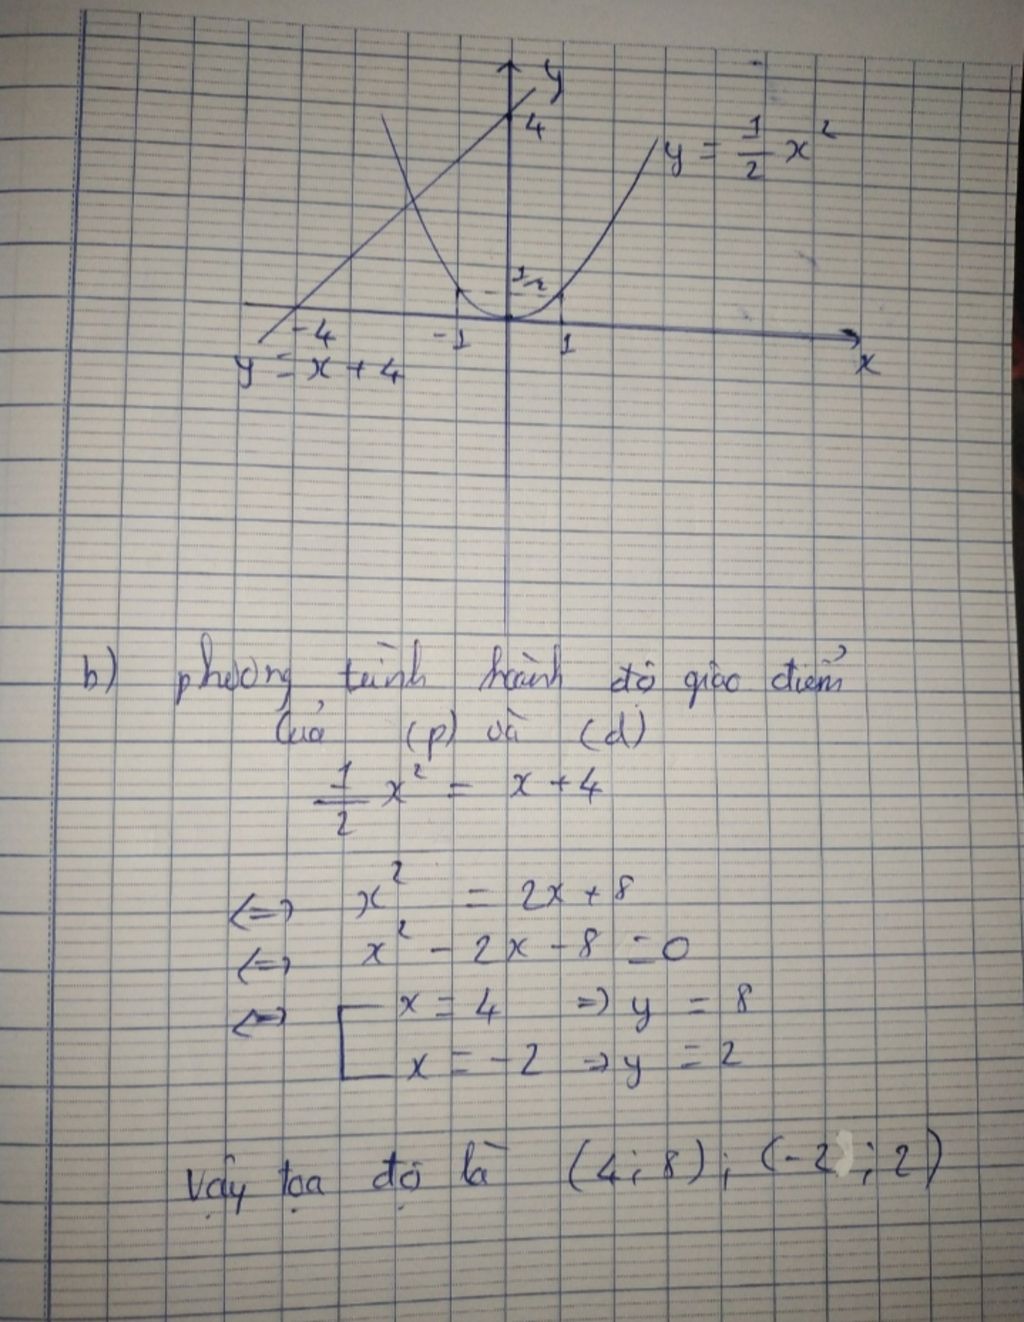 y
4
y = 1/2 x²
1/2
-4
-1
1
x
y = x + 4
b) phương trình hoành độ giao điểm
của (p) và (d)
1/2 x² = x + 4
<=> x² = 2x + 8
<=> x² - 2x - 8 = 0
<=> [ x = 4 => y = 8
x = -2 => y = 2
Vậy tọa độ là (4; 8); (-2; 2)